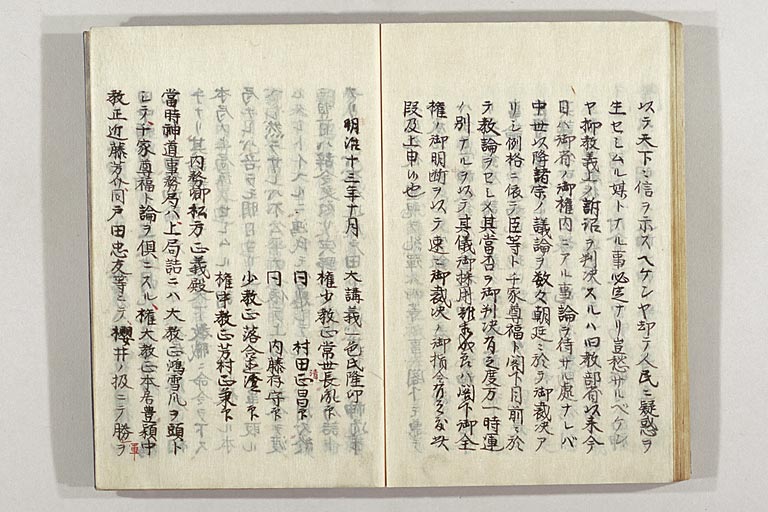 以テ天下ニ信ヲ示スヘケンヤ却テ人民ニ疑惑ヲ
生セシムル媒トナル事必定ナリ豈愁サルベケン
ヤ抑教義上ノ訴訟ヲ判决スルハ旧教部省以来今
日ハ御省ノ御権内ニアル事論ヲ待サル處ナレバ
中世以降諸宗ノ議論ヲ数々朝廷ニ於テ御裁决ア
リシ例格ニ依テ臣等ト千家尊福ト閣下目前ニ於
テ教論ヲセシメ其當否ヲ御判决有之度万一時運
ハ別ナルヲ以テ其儀御採用難相成候ハ閣下御全
権ノ御明断ヲ以テ速ニ御裁决ノ御指令有之度此
段及上申候也
明治十三年十月 大講義一色氏隆印
権少教正常世長胤下
同 村田正昌下
同 内藤存守下
少教正落合直澄下
権中教正芳村正秉下
内務卿松方正義殿
當時神道事務局ハ上局詰ニハ大教正鴻雪爪ヲ頭ト
シテ千家尊福ト論ヲ倶ニスル権大教正本居豊穎中
教正近藤芳介同戸田忠友等ニテ櫻井ノ扱ニテ勝ヲ